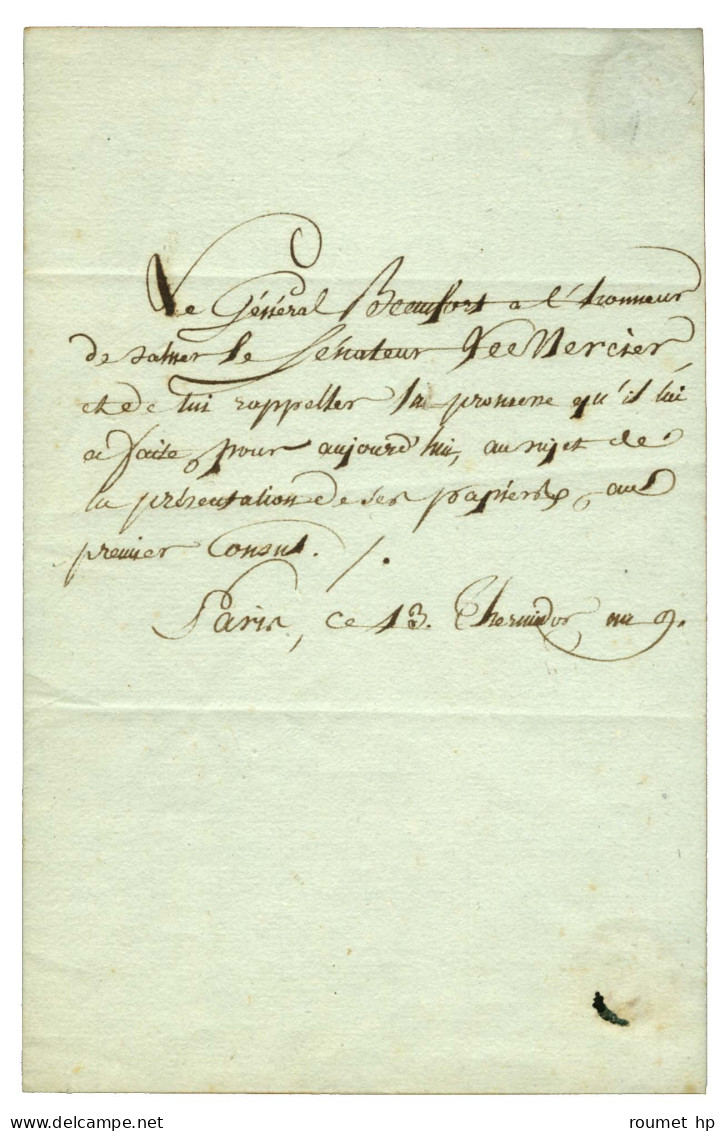 Le Général Beaufort a l'honneur
de saluer le Sénateur LeMercier,
et de lui rappeller la promesse qu'il lui
a faite, pour aujourd'hui, au sujet de
la présentation de ses papiers, au
premier Consul. /.
Paris, ce 13. Thermidor an 9.
www.delcampe.net
roumet hp